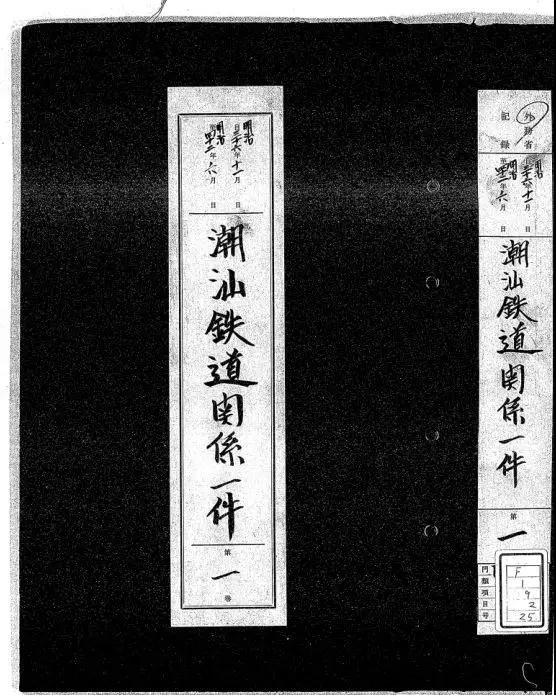 外務省
記録
自明治三十六年十一月 日
至明治四十二年六月 日
潮汕鉄道関係一件
第一
門 F
類 1
項 9
目 2
号 25
自明治三十六年十一月 日
至明治四十二年六月 日
潮汕鉄道関係一件
第一巻